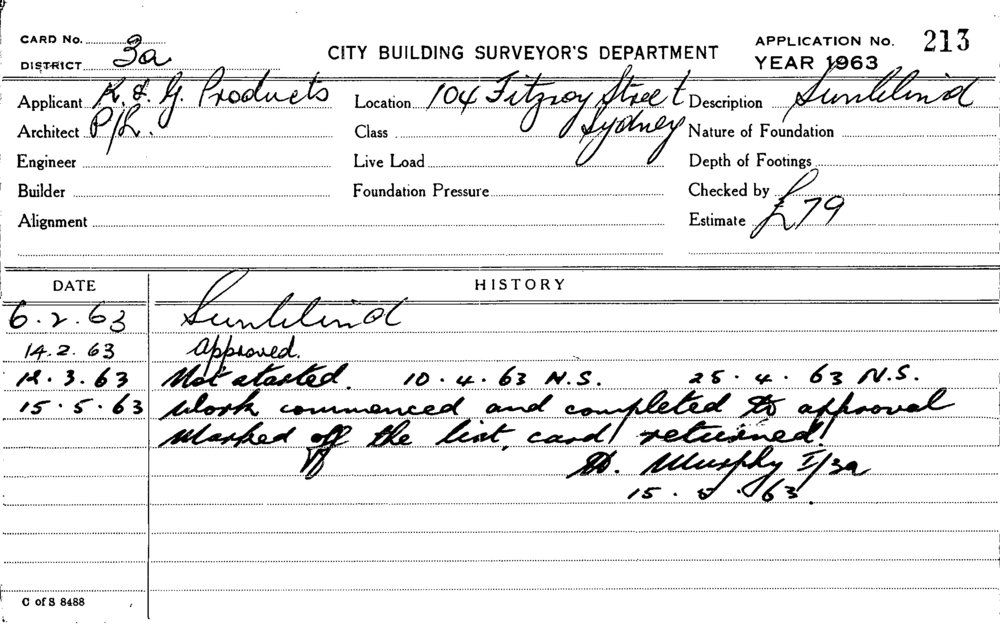 CARD No.
DISTRICT 3a
CITY BUILDING SURVEYOR'S DEPARTMENT
APPLICATION No. 213
YEAR 1963
Applicant K. & G. Products
Location 104 Fitzroy Street
Description Sunblind
Architect P/L.
Class Sydney
Nature of Foundation
Engineer
Live Load
Depth of Footings
Builder
Foundation Pressure
Checked by
Alignment
Estimate £79
DATE
HISTORY
6.2.63 Sunblind
14.2.63 Approved.
12.3.63 Not started. 10.4.63 N.S. 25.4.63 N.S.
15.5.63 Work commenced and completed to approval
Marked off the list, card returned.
Murphy I/3a
15.5.63.
C of S 8488